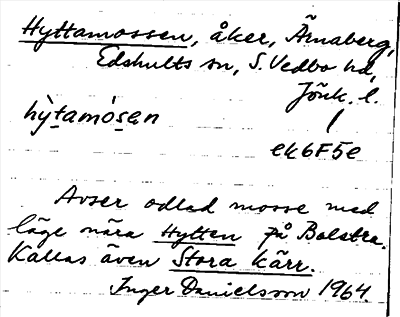 Hyttamossen, åker, Ärnaberg,
Edshults sn, S. Vedbo hd,
Jönk. l.
hỳtamósen
ek6F5e
Avser odlad mosse med
läge nära Hytten på Bolstra.
Kallas även Stora kärr.
Inger Danielsson 1964.